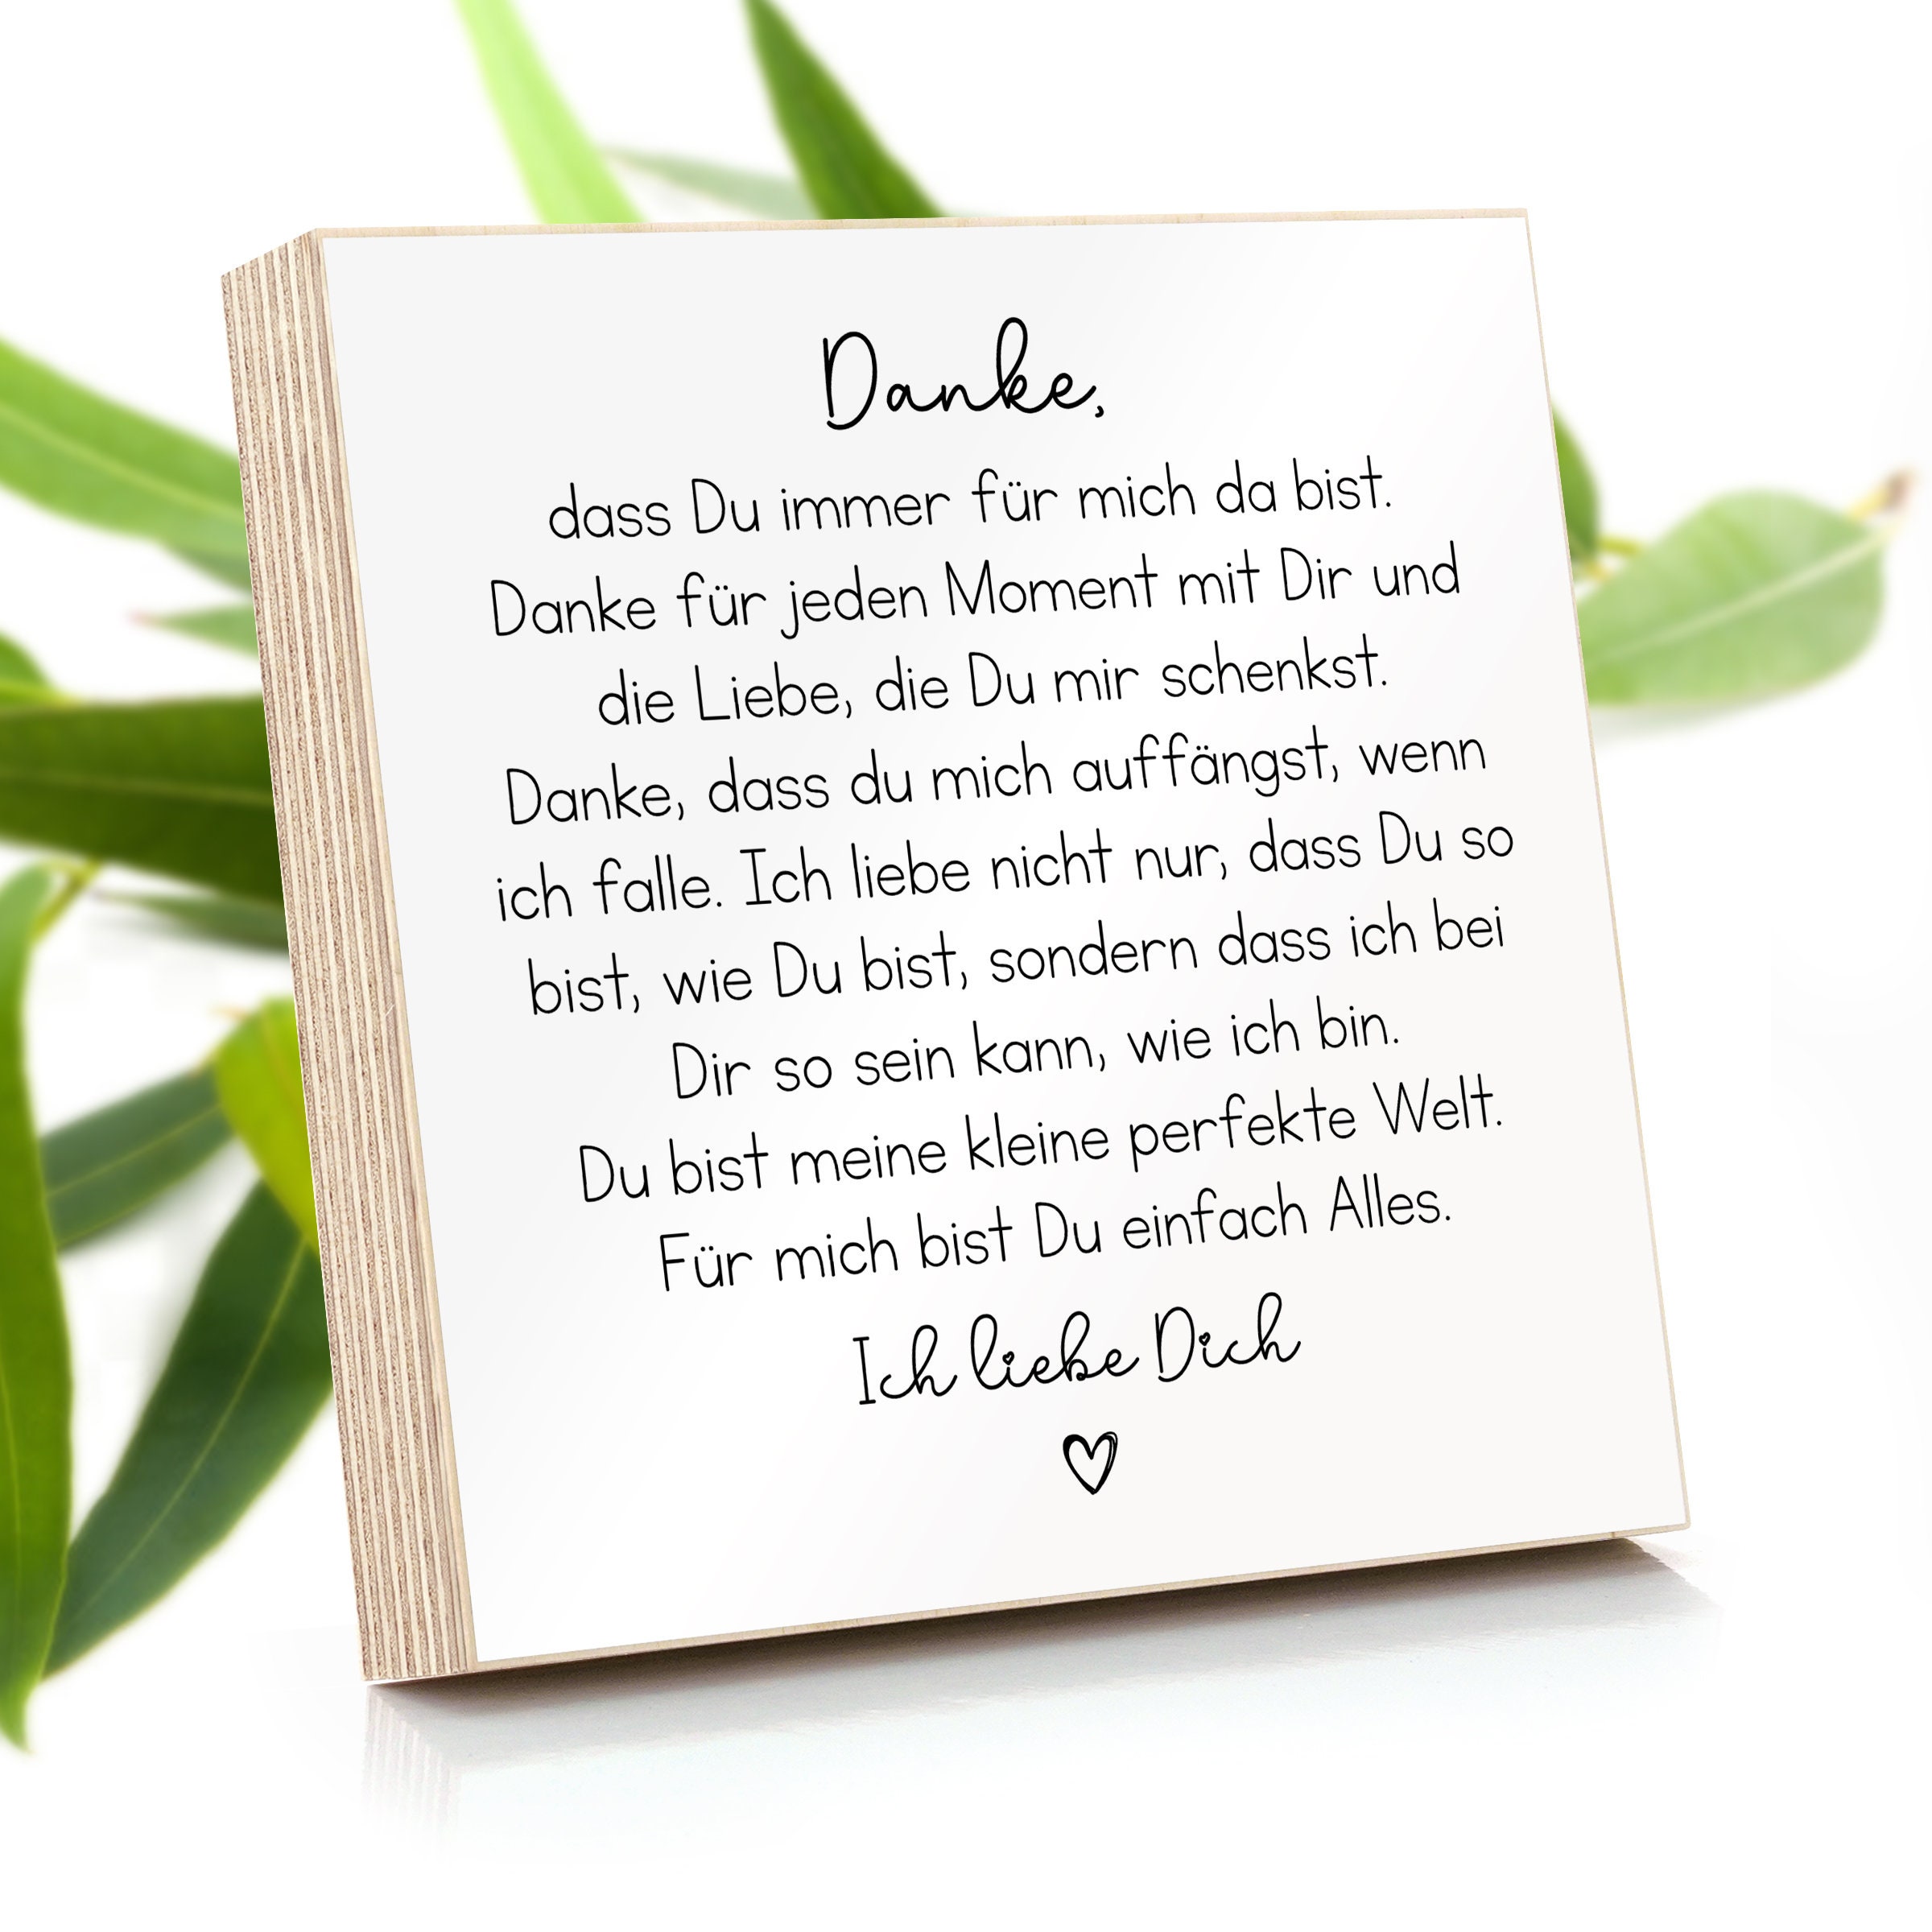 Danke,
dass Du immer für mich da bist.
Danke für jeden Moment mit Dir und
die Liebe, die Du mir schenkst.
Danke, dass du mich auffängst, wenn
ich falle. Ich liebe nicht nur, dass Du so
bist, wie Du bist, sondern dass ich bei
Dir so sein kann, wie ich bin.
Du bist meine kleine perfekte Welt.
Für mich bist Du einfach Alles.
Ich liebe Dich